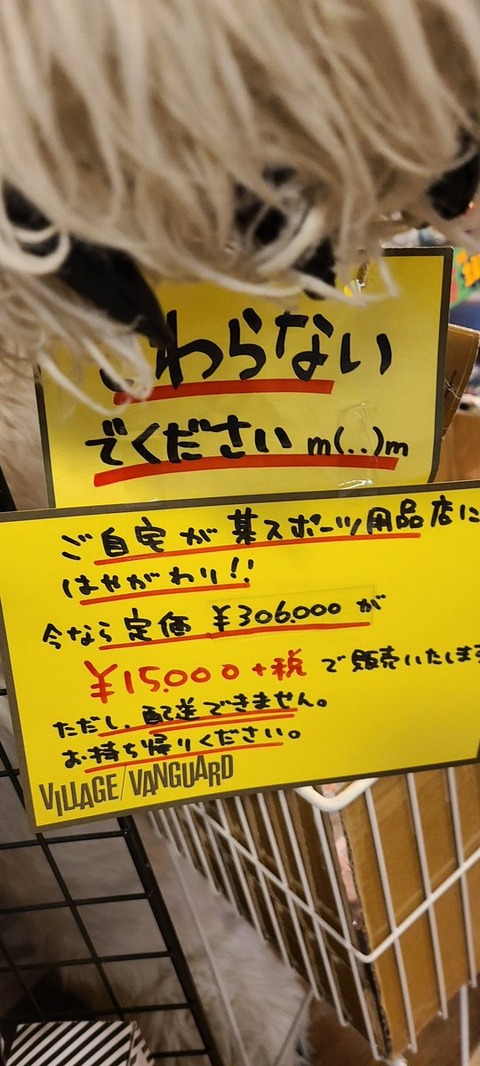 さわらない
でください m(..)m
ご自宅が某スポーツ用品店に
はやがわり!!
今なら定価 ¥306.000が
¥15.000+税 で販売いたします
ただし、配送できません。
お持ち帰りください。
VILLAGE/VANGUARD